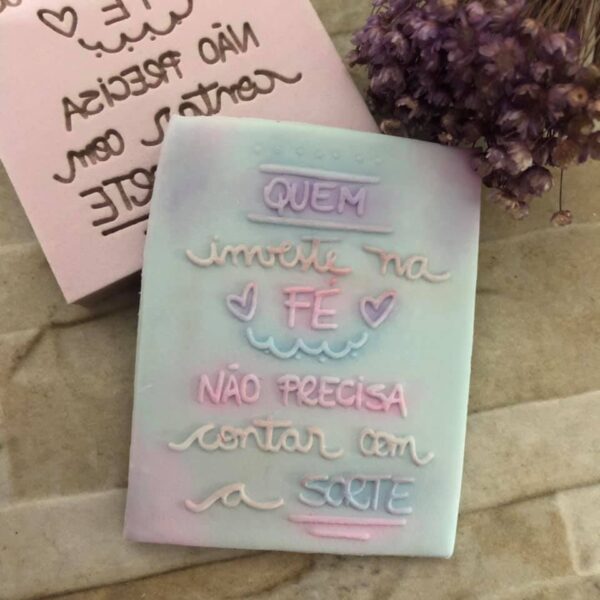 FÉ
NÃO PRECISA
contar com
SORTE
QUEM
investe na
FÉ
NÃO PRECISA
contar com
a SORTE